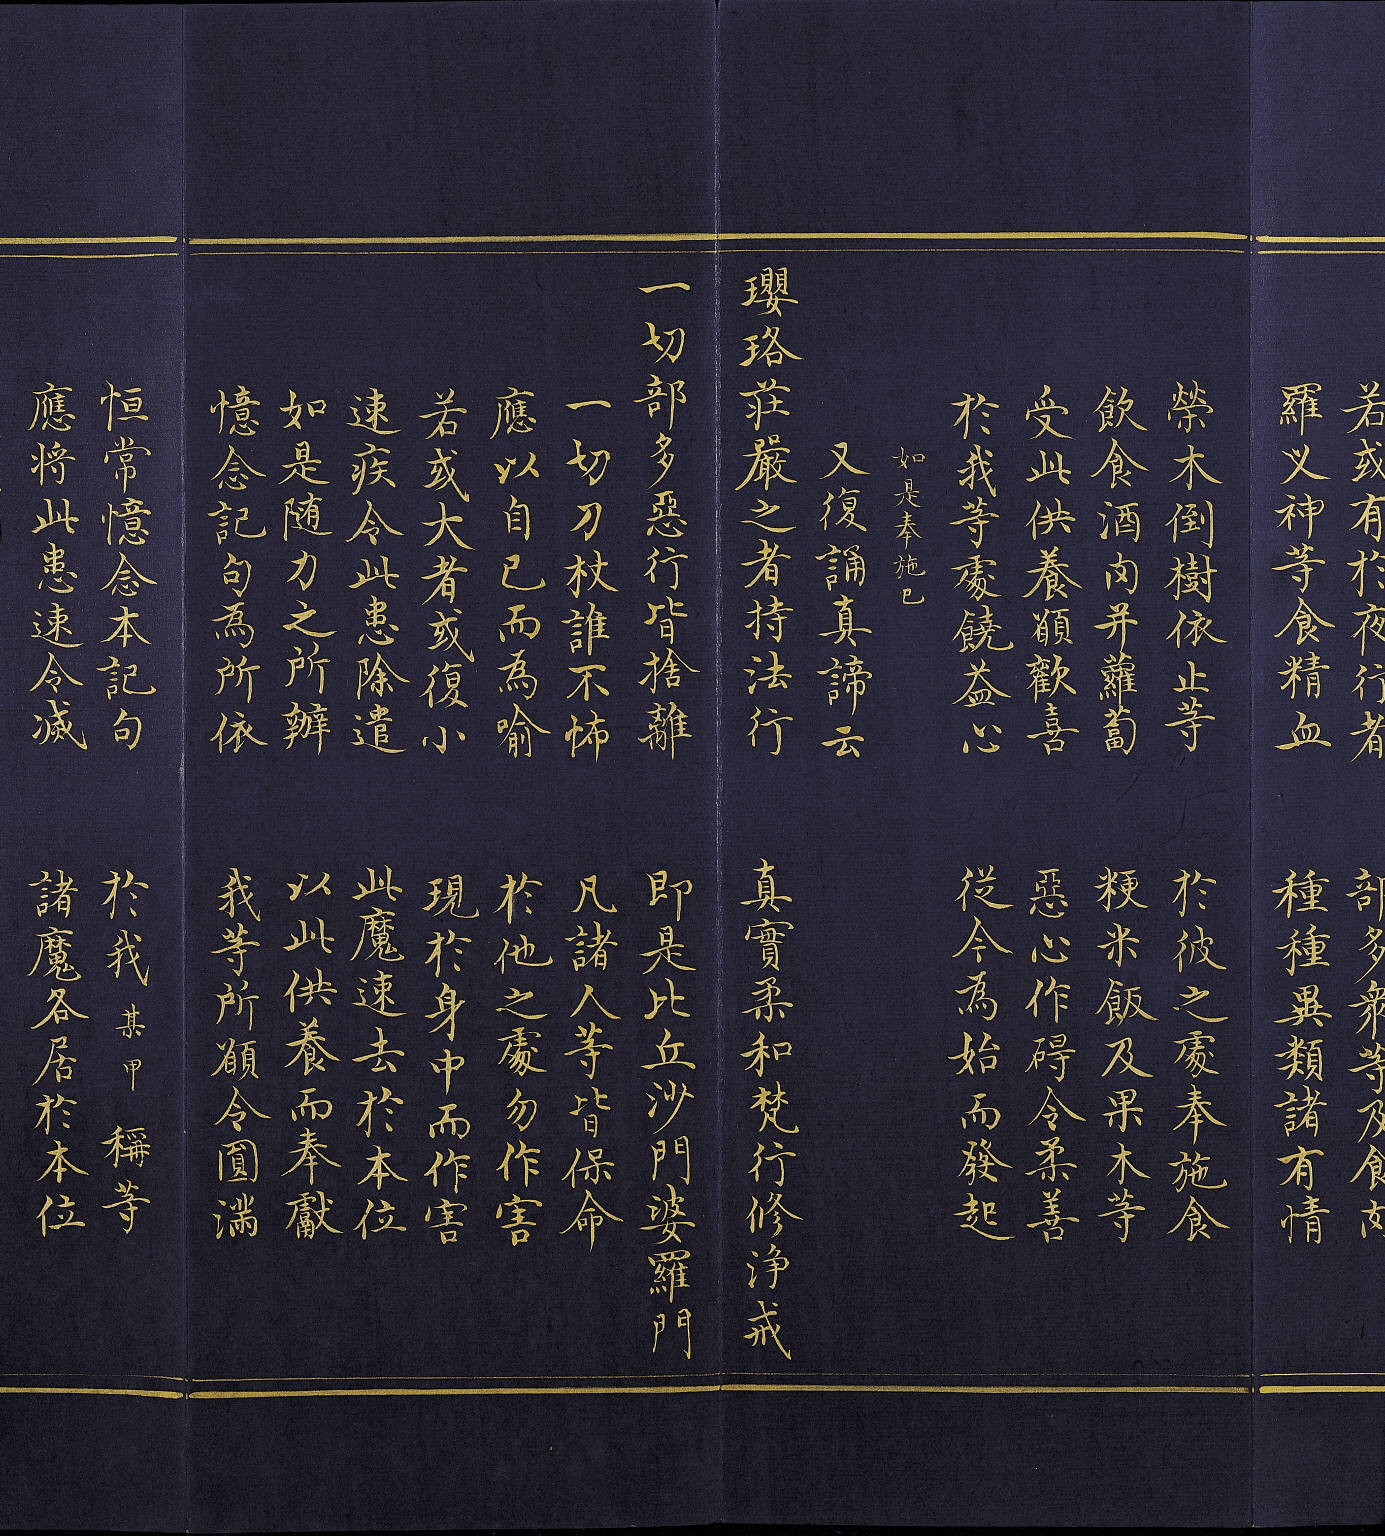 若或有於夜行者　部多衆等及食肉
羅义神等食精血　種種異類諸有情
榮木倒樹依止等　於彼之處奉施食
飲食酒肉并蘿蔔　粳米飯及果木等
受此供養願歡喜　惡心作碍令柔善
於我等處饒益心　從今為始而發起
如是奉施已
又復誦真諦云
瓔珞莊嚴之者持法行　真實柔和梵行修淨戒
一切部多惡行皆捨離　即是比丘沙門婆羅門
一切刀杖誰不怖　凡諸人等皆保命
應以自已而為喻　於他之處勿作害
若或大者或復小　現於身中而作害
速疾令此患除遣　此魔速去於本位
如是随力之所辦　以此供養而奉獻
憶念記句為所依　我等所願令圓滿
恒常憶念本記句　於我某甲稱等
應将此患速令滅　諸魔各居於本位